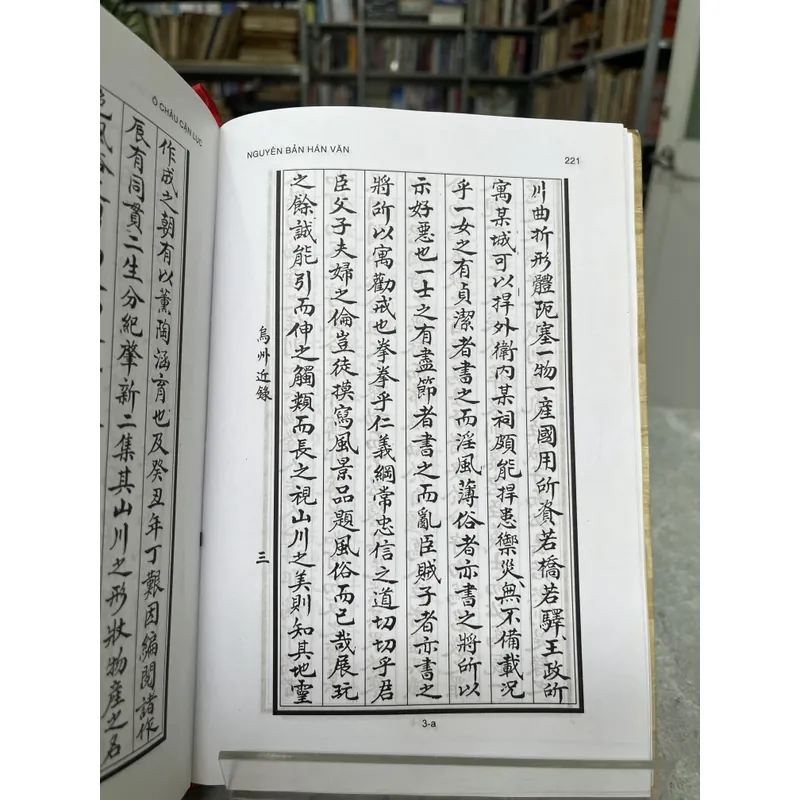 Ô CHÂU CẬN LỤC
作成之朝有以薰陶涵育也及癸丑年丁艱因編閱諸作
辰有同貫二生分紀肇新二集其山川之形狀物産之名
NGUYÊN BẢN HÁN VĂN
221
川曲折形體阨塞一物一產國用所資若橋若驛王政所
寓某城可以捍外衛内某祠頗能捍患禦災無不備載况
乎一女之有貞潔者書之而淫風薄俗者亦書之將所以
示好惡也一士之有盡節者書之而亂臣賊子者亦書之
將所以寓勸戒也拳拳乎仁義綱常忠信之道切切乎君
臣父子夫婦之倫豈徒摸寫風景品題風俗而已哉展玩
之餘誠能引而伸之觸類而長之視山川之美則知其地靈
烏州近錄
三
3-a